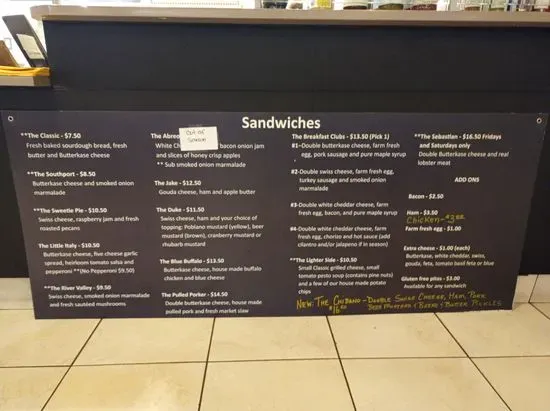 Sandwiches
**The Classic - $7.50
Fresh baked sourdough bread, fresh
butter and Butterkase cheese
**The Southport - $8.50
Butterkase cheese and smoked onion
marmalade
**The Sweetie Pie - $10.50
Swiss cheese, raspberry jam and fresh
roasted pecans
The Little Italy - $10.50
Butterkase cheese, five cheese garlic
spread, heirloom tomato salsa and
pepperoni **(No Pepperoni $9.50)
**The River Valley - $9.50
Swiss cheese, smoked onion marmalade
and fresh sautéed mushrooms
The
OUT OF
SEASON
White bacon onion jam
and slices of honey crisp apples
** Sub smoked onion marmalade
The Jake - $12.50
Gouda cheese, ham and apple butter
The Duke - $11.50
Swiss cheese, ham and your choice of
topping: Poblano mustard (yellow), beer
mustard (brown), cranberry mustard or
rhubarb mustard
The Blue Buffalo - $13.50
Butterkase cheese, house made buffalo
chicken and blue cheese
The Pulled Porker - $14.50
Double butterkase cheese, house made
pulled pork and fresh market slaw
The Breakfast Clubs - $13.50 (Pick 1)
#1–Double butterkase cheese, farm fresh
egg, pork sausage and pure maple syrup
#2-Double swiss cheese, farm fresh egg,
turkey sausage and smoked onion
marmalade
#3-Double white cheddar cheese, farm
fresh egg, bacon, and pure maple syrup
#4-Double white cheddar cheese, farm
fresh egg, chorizo and hot sauce (add
cilantro and/or jalapeno if in season)
**The Lighter Side - $10.50
Small Classic grilled cheese, small
tomato pesto soup (contains pine nuts)
and a few of our house made potato
chips
**The Sebastian - $16.50 Fridays
and Saturdays only
Double Butterkase cheese and real
lobster meat
ADD ONS
Bacon - $2.50
Ham - $3.50
Chicken-
Farm fresh egg - $1.00
Extra cheese - $1.00 (each)
Butterkase, white cheddar, swiss,
gouda, feta, tomato basil feta or blue
Gluten free pliss - $3.00
Available for any sandwich
NEW: THE CUBANO - DOUBLE SWISS CHEESE, HAM, PORK
BEER MUSTARD & BUTTER PICKLES